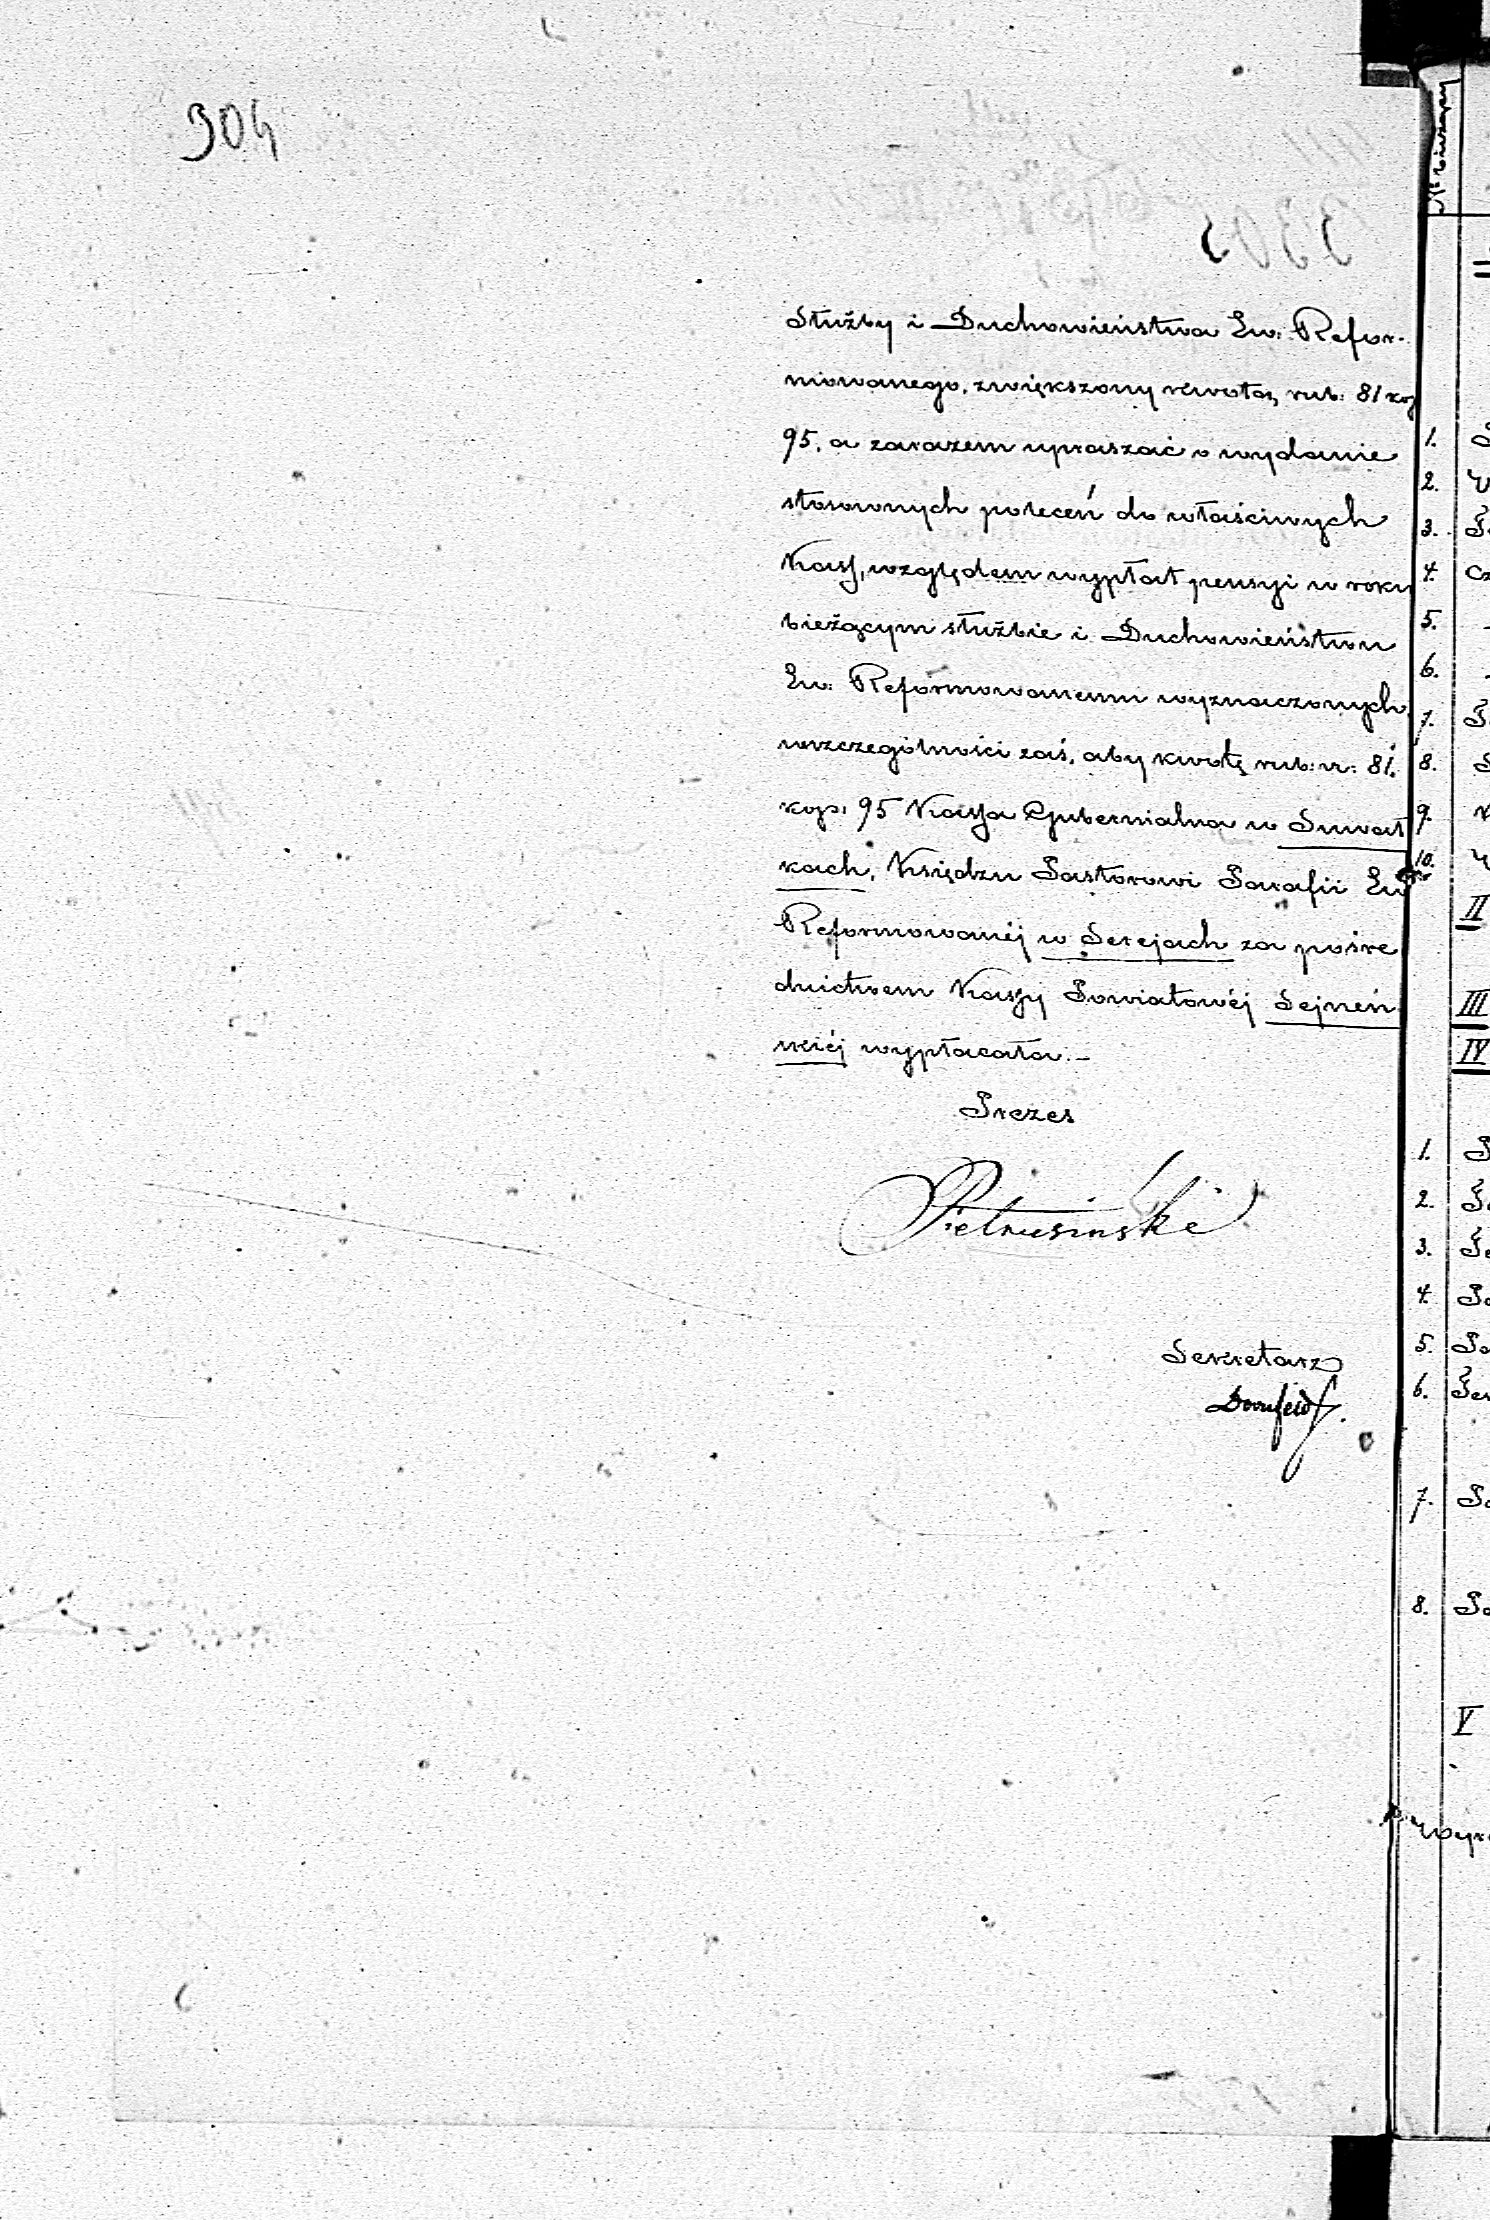 904
Służby i Duchowieństwa Ew: Refor-
mowanego, zwiększony kwotą rub: 81 kop
95, a zarazem upraszać o wydanie
stosownych poleceń do właściwych
Kass, względem wypłat pensyi w roku
bieżącym służbie i Duchowieństwu
Ew: Reformowanemu wyznaczonych,
wszczególności zaś, aby kwotę rub: sr: 81.
kop: 95 Kassa Gubernialna w Suwał
kach, Księdzu Pastorowi Parafii Ew
Reformowanéj w Serejach za pośre
dnictwem Kassy Powiatowéj Sejneń
skiéj wypłacała.–
Prezes
Pietrusiński
Sekretarz
Dornfeld
1.
2.
3.
4.
5.
6.
7.
8.
9.
10.
II
III
IV
1.
2.
3.
4.
5.
6.
7.
8.
V